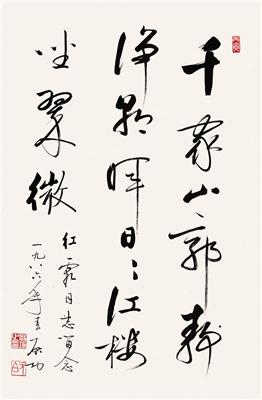 千家山郭静
朝晖日〻江楼
坐翠微
红霞同志留念
一九八六年春 启功